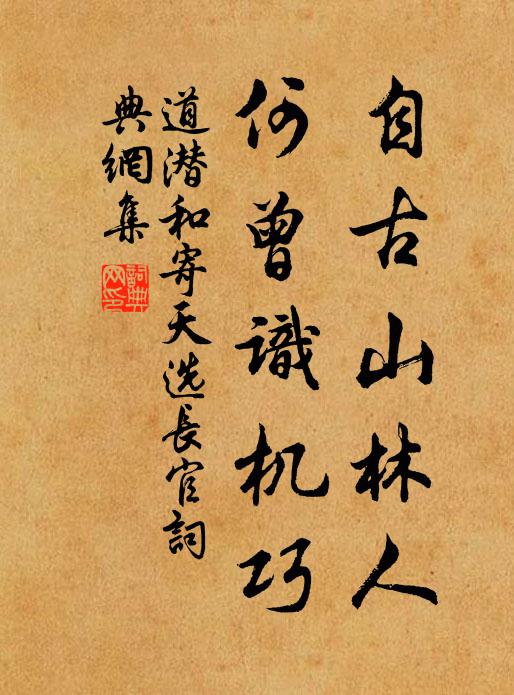 自古山林人
何曾識机巧
道潜和寄天选長官詞
典網集
詞典网印